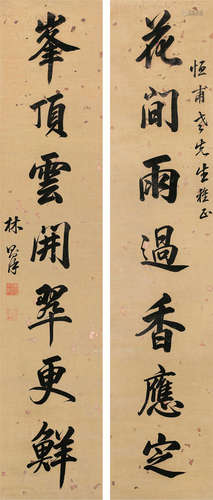 花間雨過香應定
恒甫老先生雅正
峯頂雲開翠更鮮
林則徐